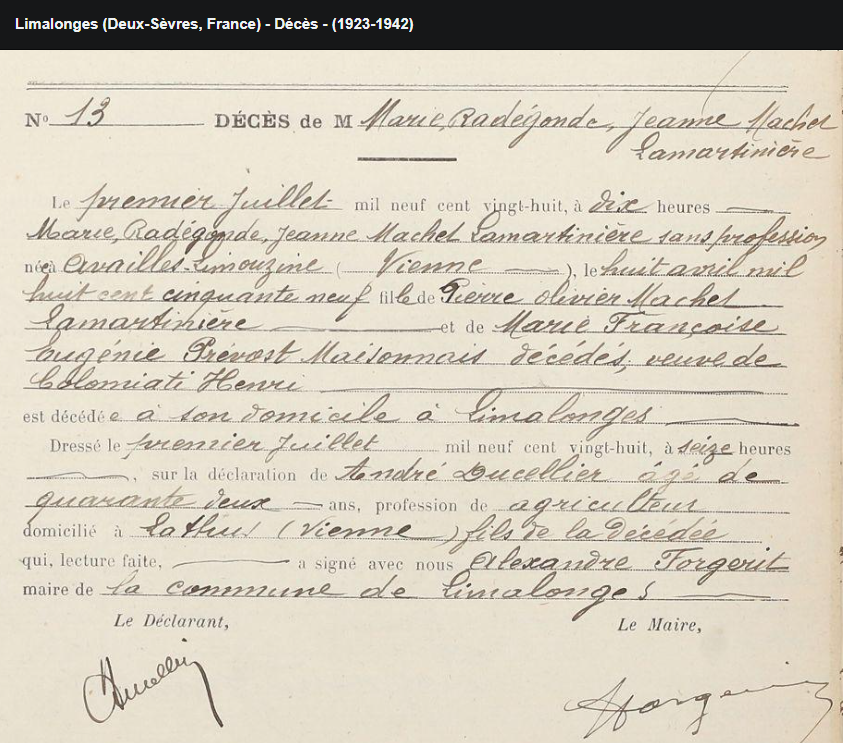 Limalonges (Deux-Sèvres, France) - Décès - (1923-1942)
No 13 DÉCÈS de M Marie, Radégonde, Jeanne Machet
Lamartinière
Le premier Juillet mil neuf cent vingt-huit, à dix heures
Marie, Radégonde, Jeanne Machet Lamartinière sans profession
née à Availles-Limouzine (Vienne), le huit avril mil
huit cent cinquante neuf fille de Pierre Olivier Machet
Lamartinière et de Marie Françoise
Eugénie Prévost Maisonnais décédés, veuve de
Colomiati Henri
est décédée à son domicile à Limalonges
Dressé le premier Juillet mil neuf cent vingt-huit, à seize heures
, sur la déclaration de André Ducellier âgé de
quarante deux ans, profession de agriculteur
domicilié à Lathus (Vienne) fils de la décédée
qui, lecture faite, a signé avec nous Alexandre Forgerit
maire de la commune de Limalonges
Le Déclarant, Le Maire,